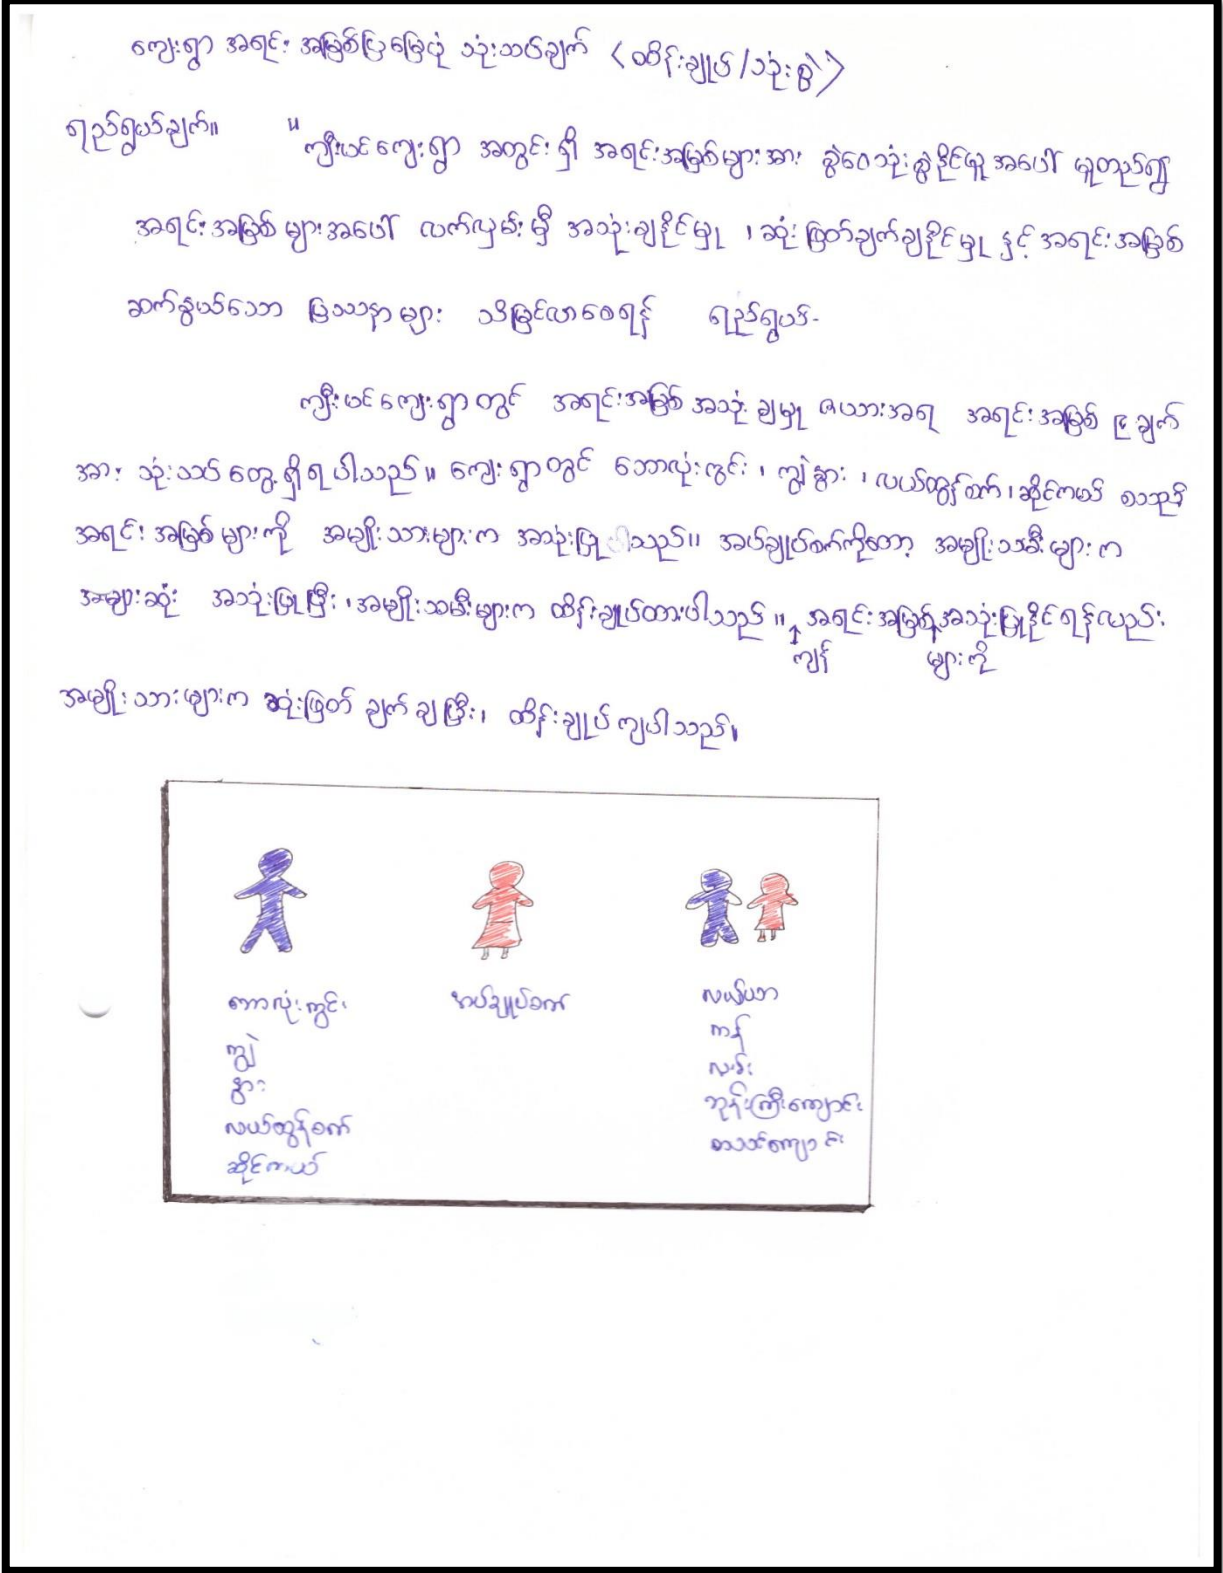 ကျေးရွာ အရင်း အမြစ်ပြမြေပုံ သုံးသပ်ချက် <ထိန်းချုပ်/သုံးစွဲ>
ရည်ရွယ်ချက်။ "ကျီးပင်ကျေးရွာ အတွင်းရှိ အရင်းအမြစ်များအား ခွဲဝေသုံးစွဲနိုင်မှု အပေါ် မူတည်၍
အရင်းအမြစ်များအပေါ် လက်လှမ်းမှီ အသုံးချနိုင်မှု ၊ ဆုံးဖြတ်ချက်ချနိုင်မှု နှင့် အရင်းအမြစ်
ဆက်နွယ်သော ပြဿနာများ သိမြင်လာစေရန် ရည်ရွယ်-
ကျီးပင်ကျေးရွာတွင် အရင်းအမြစ် အသုံးချမှု ဇယားအရ အရင်းအမြစ် ၉ ချက်
အား သုံးသပ်တွေ့ရှိရပါသည်။ ကျေးရွာတွင် ဘောလုံးကွင်း ၊ ကျွဲနွား ၊ လယ်ထွန်စက်၊ ဆိုင်ကယ် စသည့်
အရင်းအမြစ်များကို အမျိုးသားများက အသုံးပြုပါသည်။ အပ်ချုပ်စက်ကိုတော့ အမျိုးသမီးများက
အများဆုံး အသုံးပြုပြီး ၊ အမျိုးသမီးများက ထိန်းချုပ်ထားပါသည်။ ကျန် အရင်းအမြစ်များကို အသုံးပြုနိုင်ရန်လည်း
အမျိုးသားများက ဆုံးဖြတ်ချက်ချပြီး၊ ထိန်းချုပ်ကျပါသည်။
ဘောလုံးကွင်း အပ်ချုပ်စက် လယ်ယာ
ကျွဲ ကန်
နွား လမ်း
လယ်ထွန်စက် ဘုန်းကြီးကျောင်း
ဆိုင်ကယ် စာသင်ကျောင်း